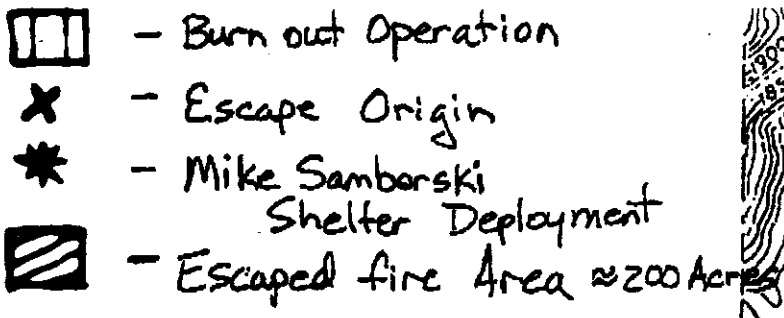 - Burn out Operation
- Escape Origin
- Mike Samborski
Shelter Deployment
- Escaped fire Area ≈200 Acres
1900
185